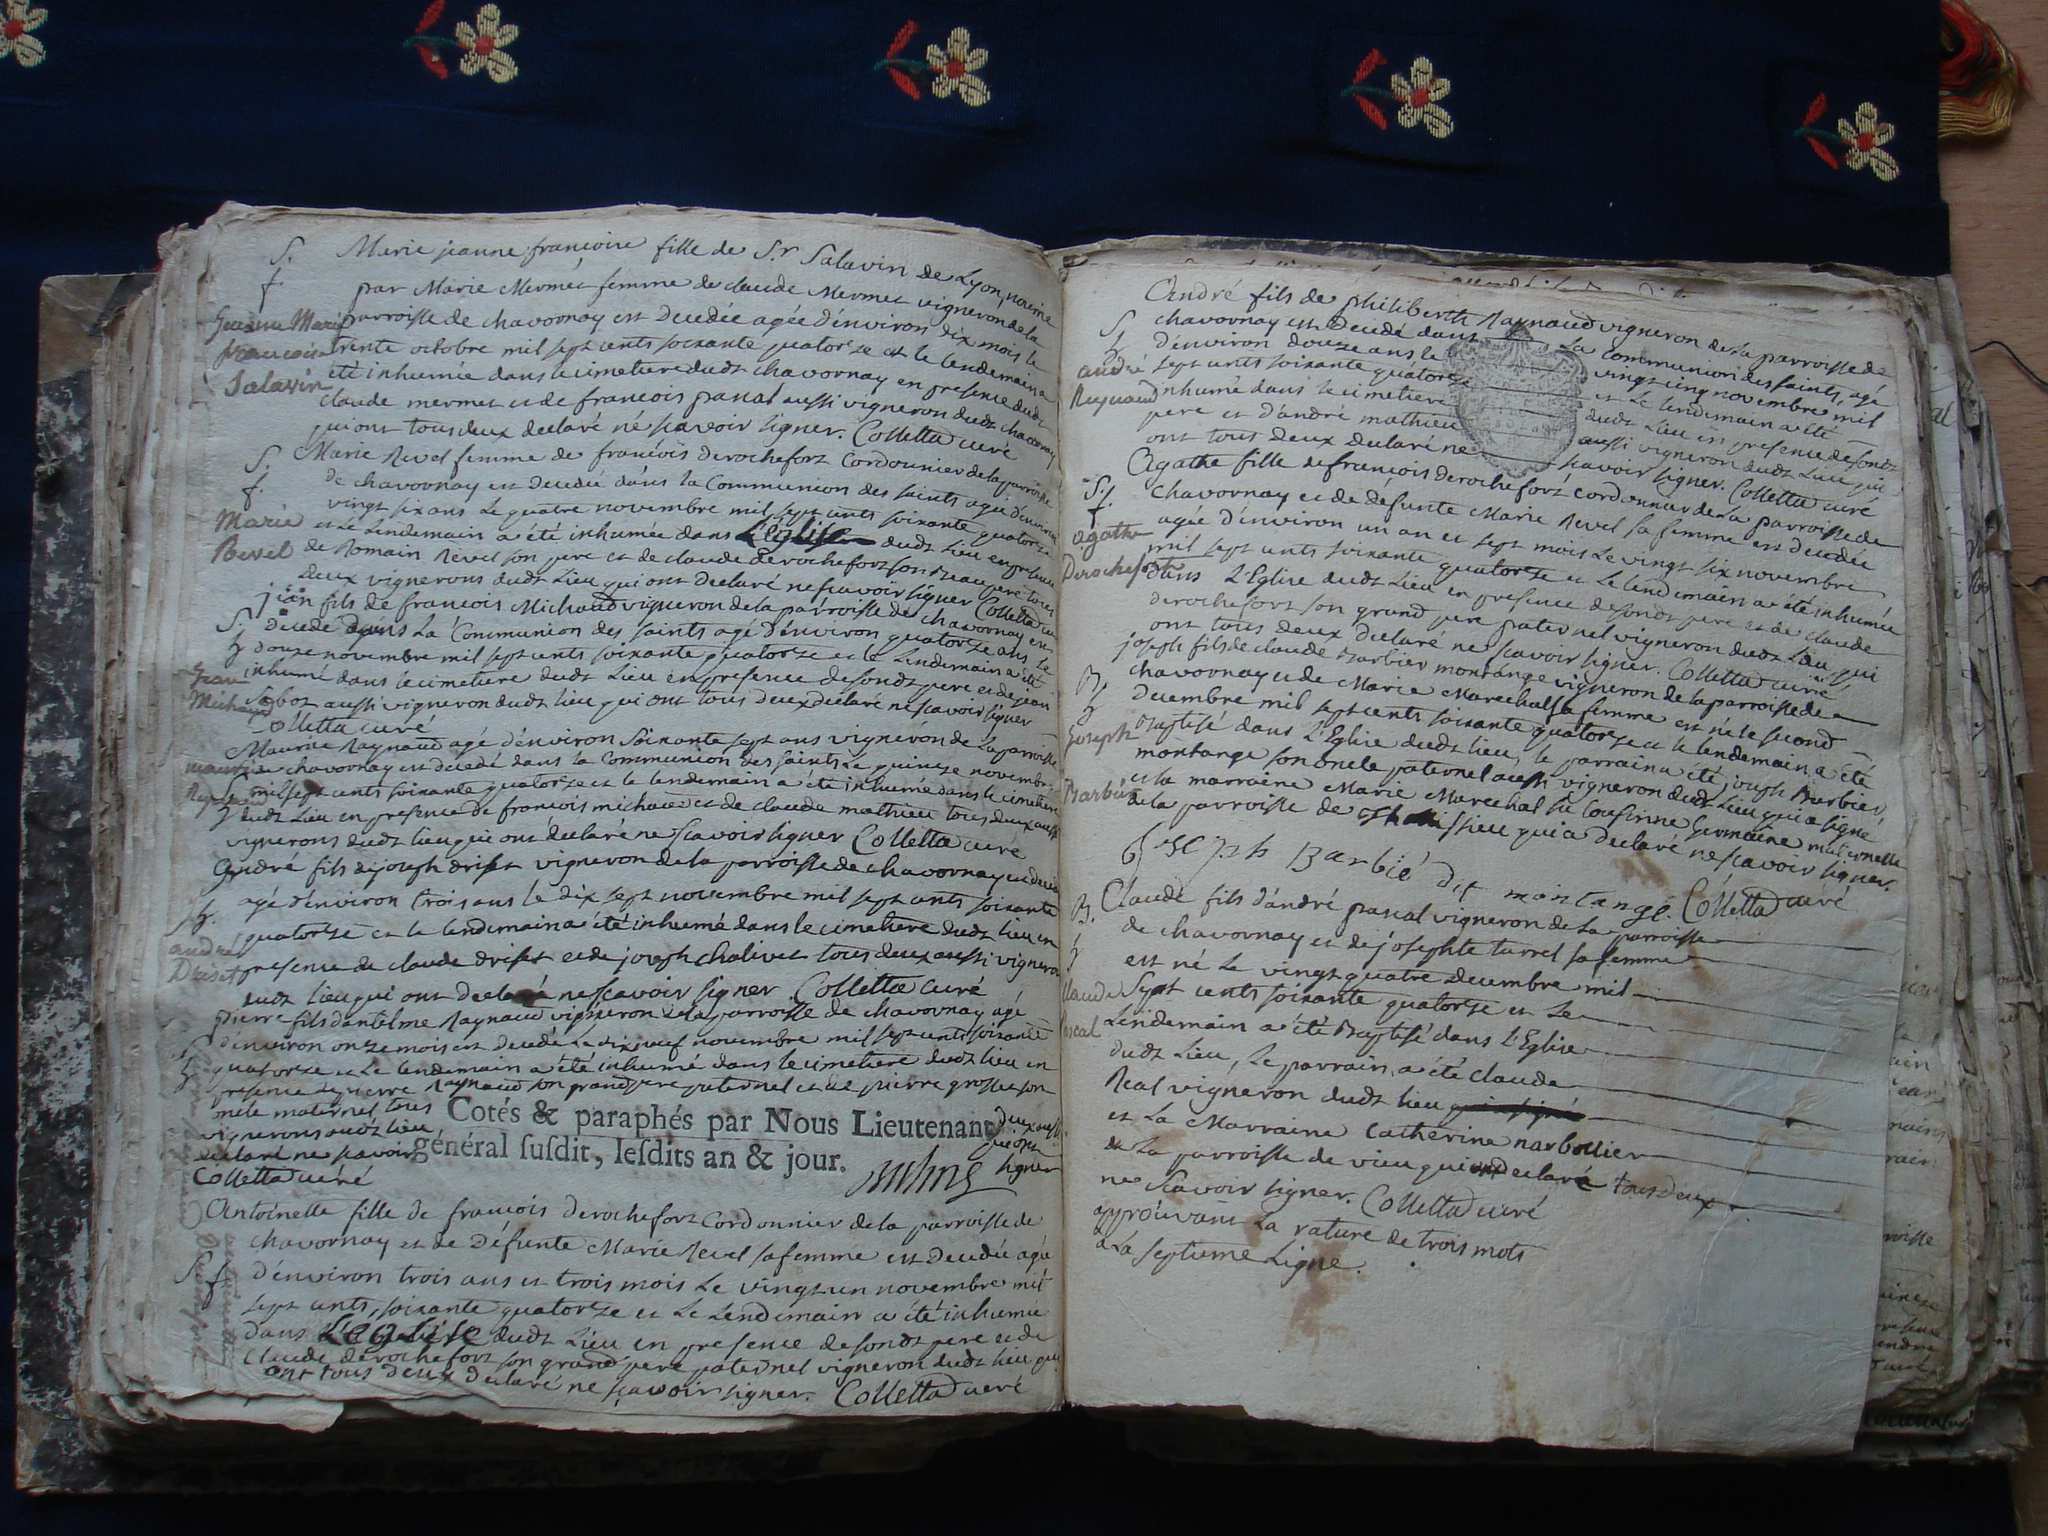 S. Marie jeanne francoise fille de S.r Salavin de Lyon, nourie
f. par Marie Mermet femme de claude Mermet vigneron de la
parroisse de chavornay est Decedée agée d'environ dix mois le
trente octobre mil sept cents soixante quatorze et le lendemain a
été inhumée dans le cimetiere dudt chavornay en presence dudt
claude mermet et de francois pascal aussi vigneron dudt chavornay
qui ont tous deux declaré ne scavoir signer. Colletta curé
Jeanne Marie
francoise
Salavin
S. Marie Revel femme de francois Derochefort Cordonnier de la parroisse
f. de chavornay est Decedée dans la Communion des saints agée d'environ
vingt six ans Le quatre novembre mil sept cents soixante quatorze
et Le Lendemain a été inhumée dans L'église dudt Lieu en presence
de Romain Revel son pere et de claude Derochefort son Beau pere tous
Deux vignerons dudt Lieu qui ont Declaré ne scavoir signer Colletta curé
Marie
Revel
jean fils de francois Michaud vigneron de la parroisse de chavornay est
S. Decedé dans La Communion des saints agé d'environ quatorze ans le
douze novembre mil sept cents soixante quatorze et le Lendemain a été
inhumé dans le cimetiere dudt Lieu en presence de sondt pere et de jean
aussi vigneron dudt lieu qui ont tous deux declaré ne scavoir signer
Colletta curé
Jean
Michaud
Maurice Raynaud agé d'environ soixante sept ans vigneron de La parroisse
de chavornay est decedé dans la Communion des saints Le quinze novembre
mil sept cents soixante quatorze et le lendemain a été inhumé dans le cimetiere
dudt Lieu en presence de francois michaud et de claude mathieu tous deux aussi
vignerons dudt lieu qui ont declaré ne scavoir signer Colletta curé
maurice
Reynaud
André fils de joseph Driset vigneron de la parroisse de chavornay est decedé
agé d'environ trois ans le dix sept novembre mil sept cents soixante
quatorze et le lendemain a été inhumé dans le cimetiere dudt lieu en
presence de claude Driset et de joseph Chalivet tous deux aussi vignerons
dudt lieu qui ont declaré ne scavoir signer Colletta curé
andré
Driset
pierre fils d'antelme Raynaud vigneron de la parroisse de chavornay agé
d'environ onze mois est Decedé Le dix neuf novembre mil sept cents soixante
quatorze et Le lendemain a été inhumé dans le cimetiere dudt lieu en
presence de pierre Raynaud son grand pere paternel et de pierre grosset son
oncle maternel, tous deux aussi
vignerons dudt lieu qui ont
declaré ne scavoir signer
Colletta curé
Cotés & paraphés par Nous Lieutenant
général susdit, lesdits an & jour.
Antoinette fille de francois Derochefort Cordonnier de la parroisse de
chavornay et de Défunte Marie Revel sa femme est Decedée agée
S. f d'environ trois ans et trois mois Le vingt un novembre mil
sept cents soixante quatorze et Le Lendemain a été inhumée
dans L'eglise dudt Lieu en presence de sondt pere et de
Claude Derochefort son grand pere paternel vigneron dudt lieu qui
ont tous deux declaré ne scavoir signer. Colletta curé
André fils de philiberth Raynaud vigneron de la parroisse de
chavornay est Decedé dans La Communion des saints, agé
d'environ douze ans le vingt cinq novembre mil
sept cents soixante quatorze et Le lendemain a été
inhumé dans le cimetiere dudt Lieu en presence de sondt
pere et d'andré mathieu aussi vigneron dudt Lieu qui
ont tous deux declaré ne scavoir signer. Colletta curé
andré
Reynaud
S. Agathe fille de francois Derochefort cordonnier de La parroisse de
f. chavornay et de défunte Marie Revel sa femme est decedée
agée d'environ un an et sept mois Le vingt six novembre
mil sept cents soixante quatorze et Le lendemain a été inhumée
dans L'Eglise dudt Lieu en presence de sondt pere et de claude
derochefort son grand pere paternel vigneron dudt Lieu, qui
ont tous deux declaré ne scavoir signer. Colletta curé
agathe
Derochefort
joseph fils de claude Barbier montange vigneron de la parroisse de
B. chavornay et de Marie Marechal sa femme est né le second
decembre mil sept cents soixante quatorze et le lendemain a été
Baptisé dans L'Eglise dudt lieu, le parrain a été joseph Barbier
montange son oncle paternel aussi vigneron dudt Lieu qui a signé
et la marraine Marie Marechal sa Cousinne Germaine maternelle
de la parroisse de qui a declaré ne scavoir signer.
Joseph
Barbier
joseph Barbié dit montange. Colletta curé
B. Claude fils d'andré pascal vigneron de La parroisse
de chavornay et de josephte turrel sa femme
est né Le vingt quatre decembre mil
sept cents soixante quatorze et Le
Lendemain a été Baptisé dans L'Eglise
dudt Lieu, Le parrain a été claude
Real vigneron dudt lieu qui a signé
et La Marraine Catherine narbollier
de La parroisse de vieu qui ont declaré tous deux
ne scavoir signer. Colletta curé
approuvant La rature de trois mots
a La septieme Ligne.
Claude
Pascal